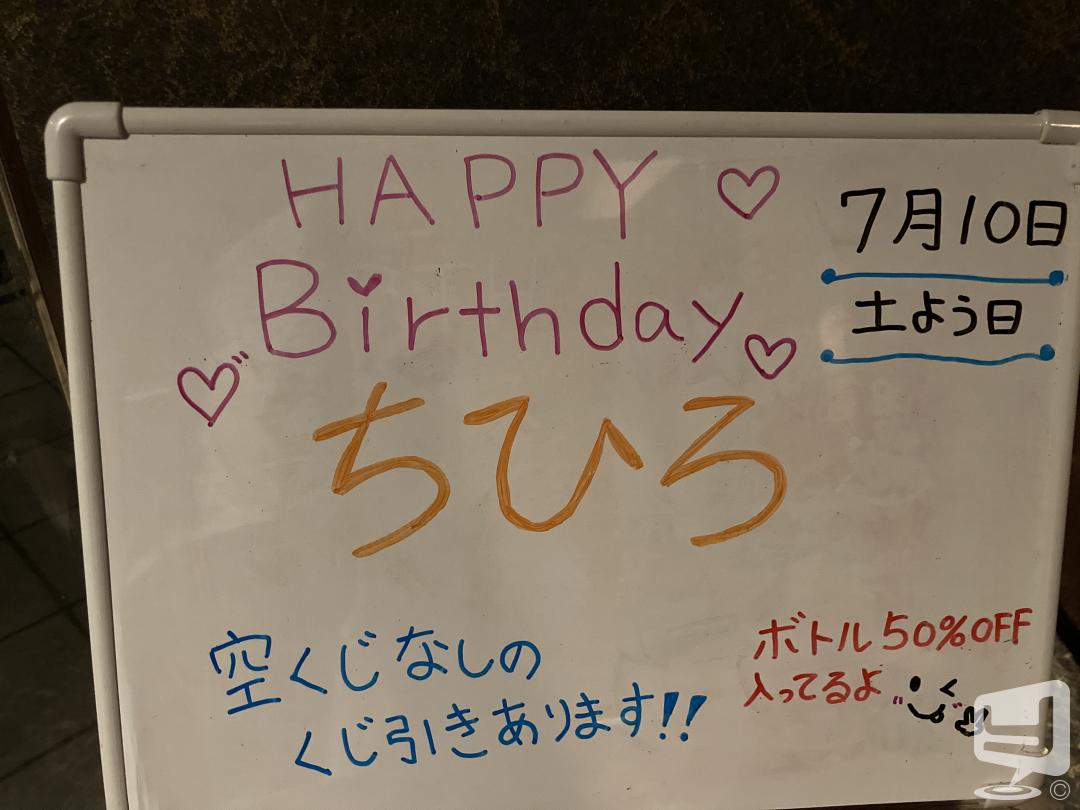 HAPPY
Birthday
7月10日
土よう日
ちひろ
空くじなしの
くじ引きあります!!
ボトル50%OFF
入ってるよ
©